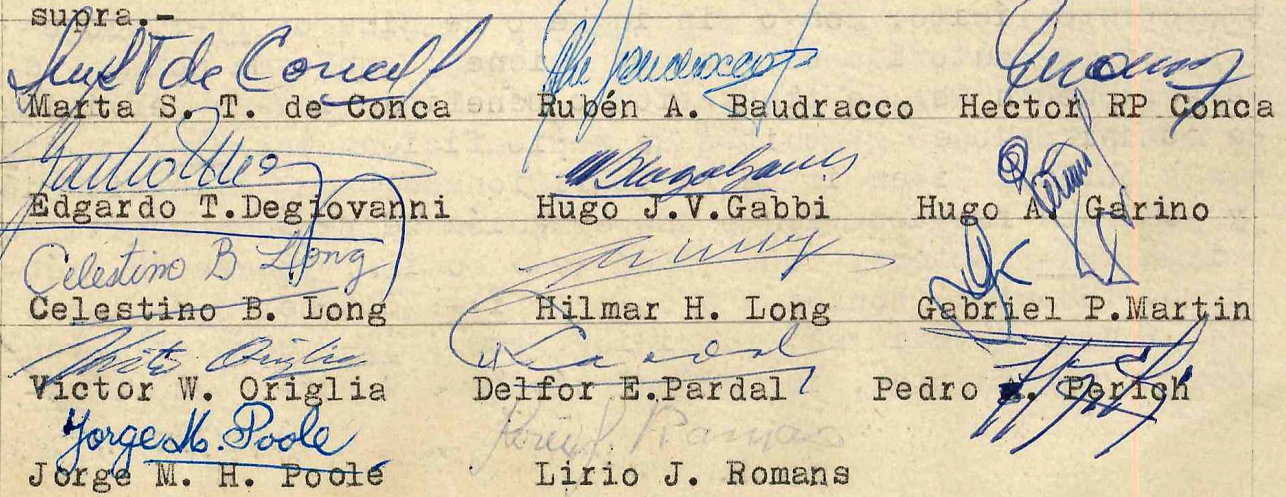 supra.-
Marta S. T. de Conca Rubén A. Baudracco Hector RP Conca
Edgardo T.Degiovanni Hugo J.V.Gabbi Hugo A. Garino
Celestino B Long
Celestino B. Long Hilmar H. Long Gabriel P.Martin
Victor W. Origlia Delfor E.Pardal Pedro Perich
Jorge M. Poole
Jorge M. H. Poole Lirio J. Romans